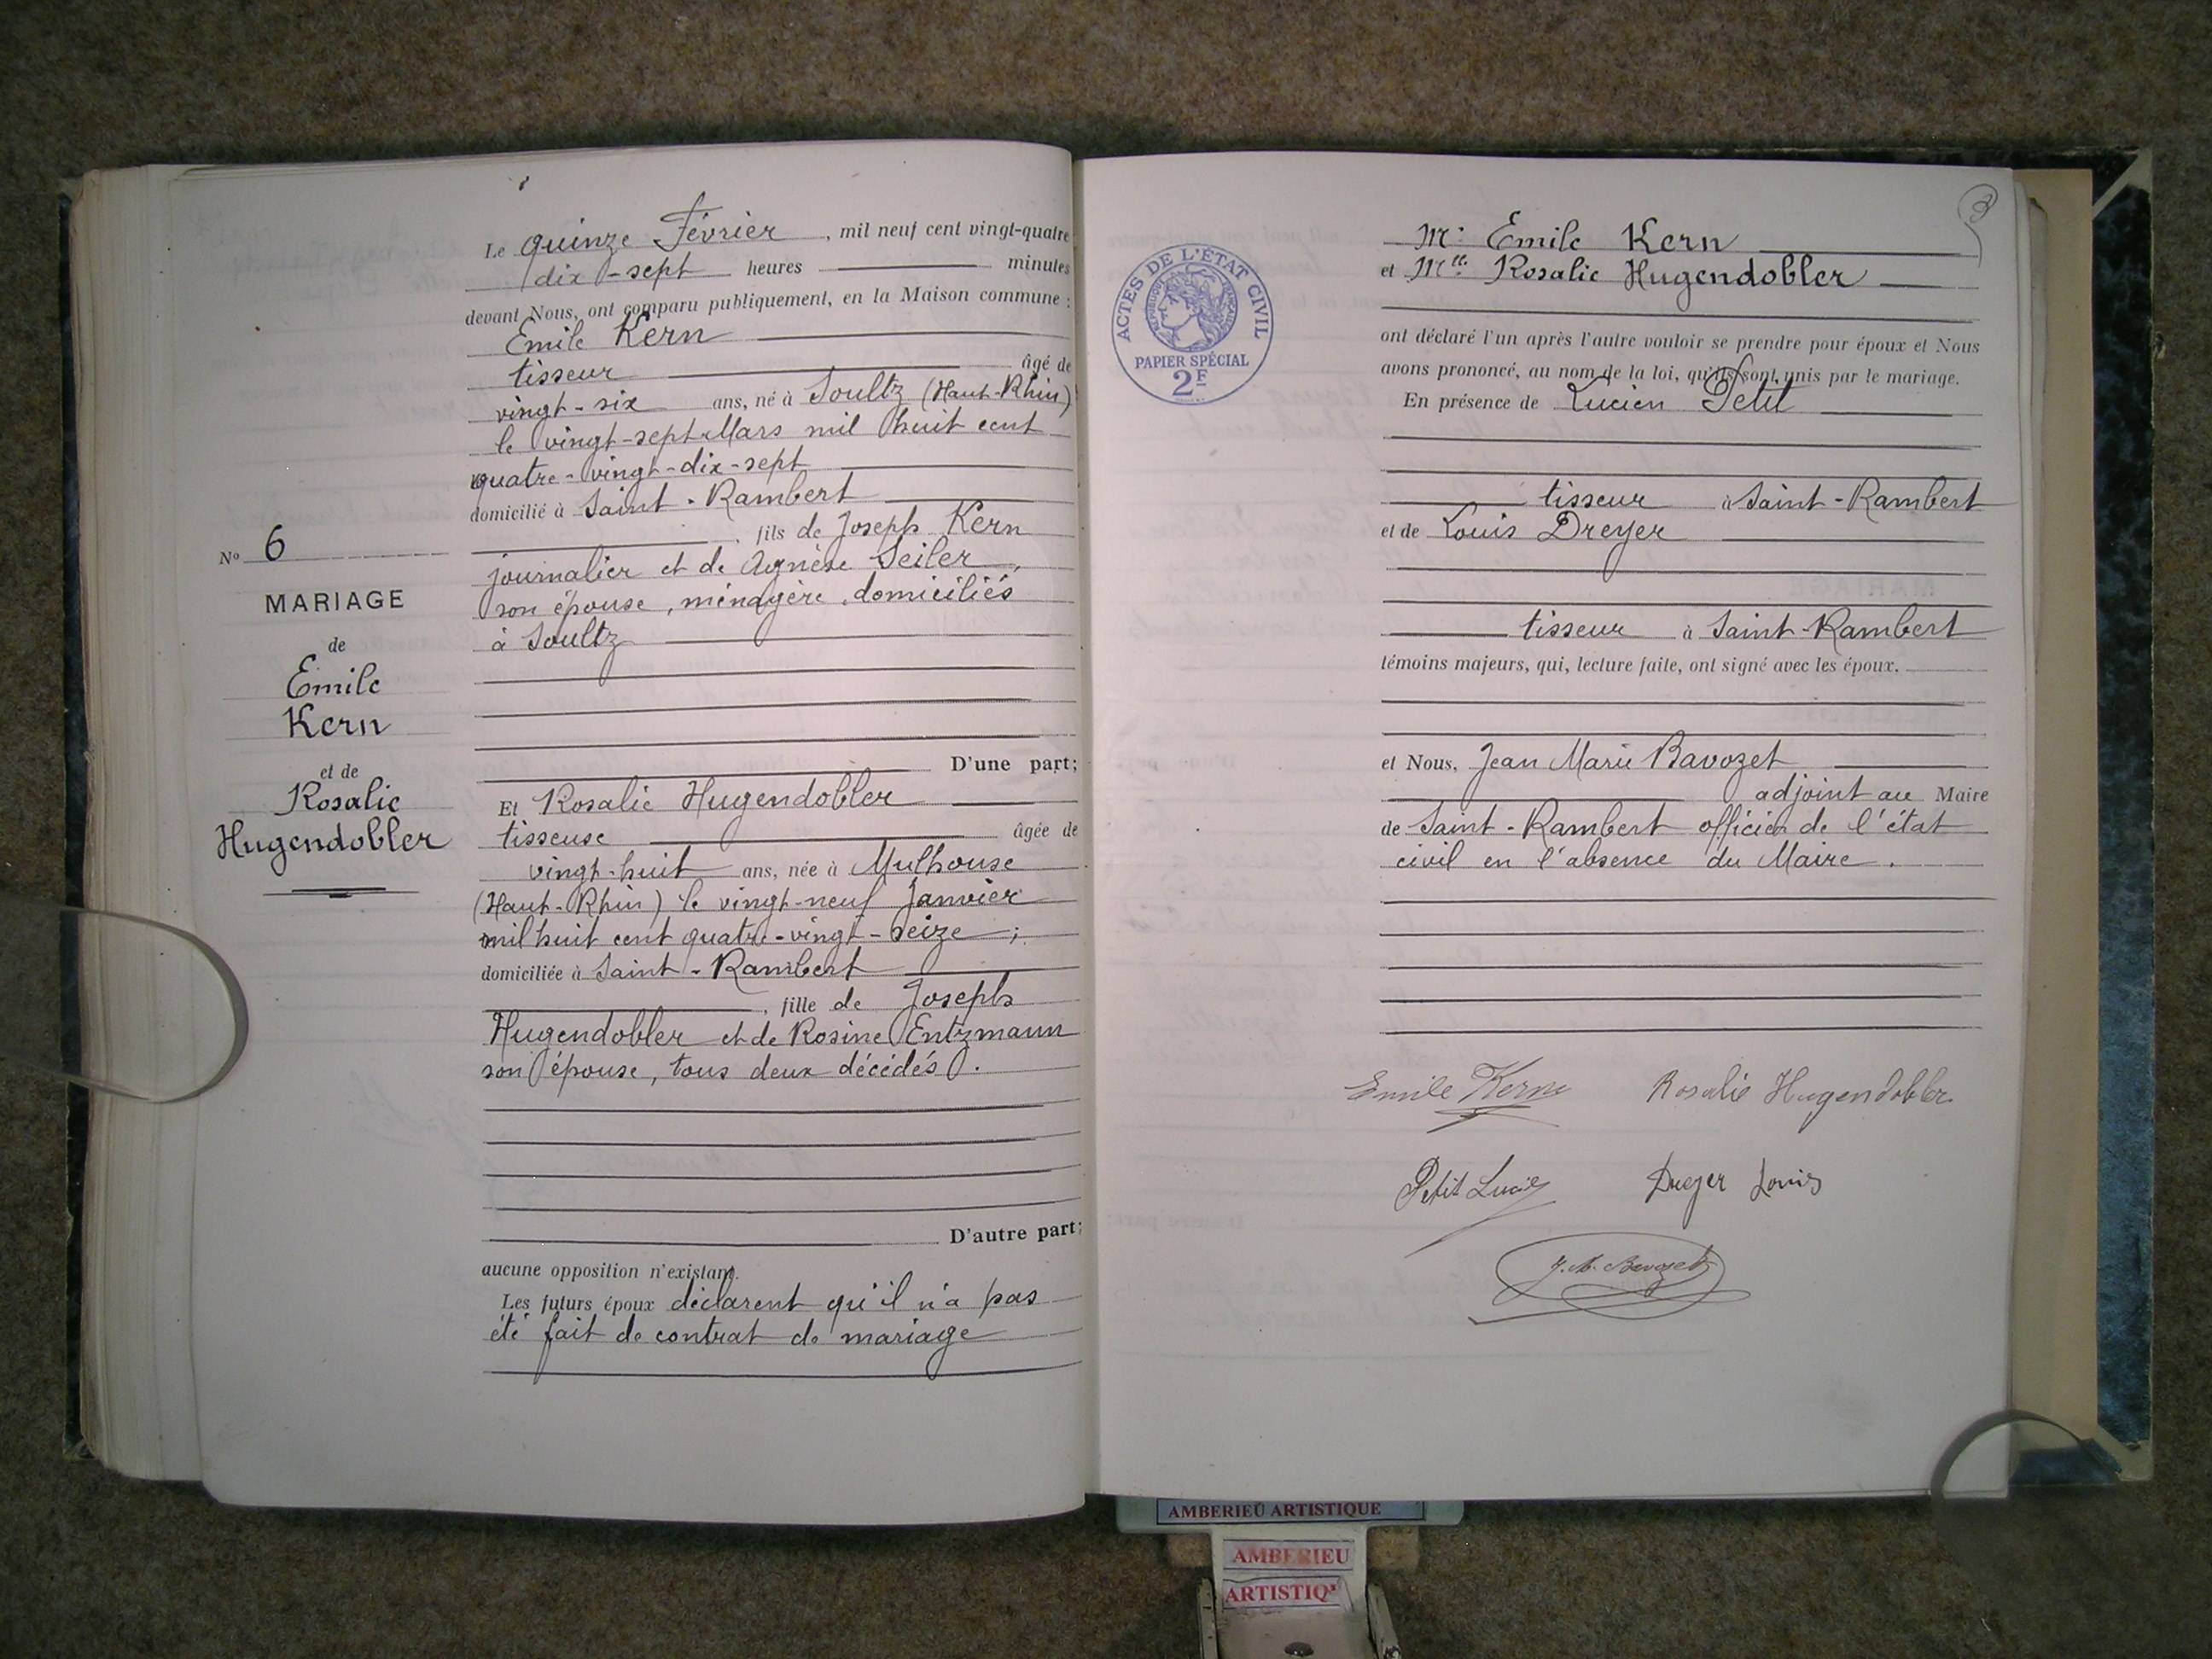 Le quinze Février, mil neuf cent vingt-quatre
dix-sept heures minutes
devant Nous, ont comparu publiquement, en la Maison commune :
Emile Kern
tisseur âgé de
vingt-six ans, né à Soultz (Haut-Rhin)
le vingt-sept Mars mil huit cent
quatre-vingt-dix-sept
domicilié à Saint-Rambert
, fils de Joseph Kern
journalier et de Agnèse Seiler,
son épouse, ménagère, domiciliés
à Soultz
D'une part;
Et Rosalie Hugendobler
tisseuse âgée de
vingt-huit ans, née à Mulhouse
(Haut-Rhin) le vingt-neuf Janvier
mil huit cent quatre-vingt-seize ;
domiciliée à Saint-Rambert
, fille de Joseph
Hugendobler et de Rosine Entzmann
son épouse, tous deux décédés.
D'autre part;
aucune opposition n'existant.
Les futurs époux déclarent qu'il n'a pas
été fait de contrat de mariage
No 6
MARIAGE
de
Emile
Kern
et de
Rosalie
Hugendobler
3
ACTES DE L'ÉTAT CIVIL
RÉPUBLIQUE FRANÇAISE
PAPIER SPÉCIAL
2F
Mr. Emile Kern
et Mlle. Rosalie Hugendobler
ont déclaré l'un après l'autre vouloir se prendre pour époux et Nous
avons prononcé, au nom de la loi, qu'ils sont unis par le mariage.
En présence de Lucien Petit
tisseur à Saint-Rambert
et de Louis Dreyer
tisseur à Saint-Rambert
témoins majeurs, qui, lecture faite, ont signé avec les époux.
et Nous, Jean Marie Bavozet
adjoint au Maire
de Saint-Rambert officier de l'état
civil en l'absence du Maire.
Emile Kern Rosalie Hugendobler
Petit Lucien Dreyer Louis
J. M. Bavozet
AMBERIEU ARTISTIQUE
AMBERIEU
ARTISTIQ